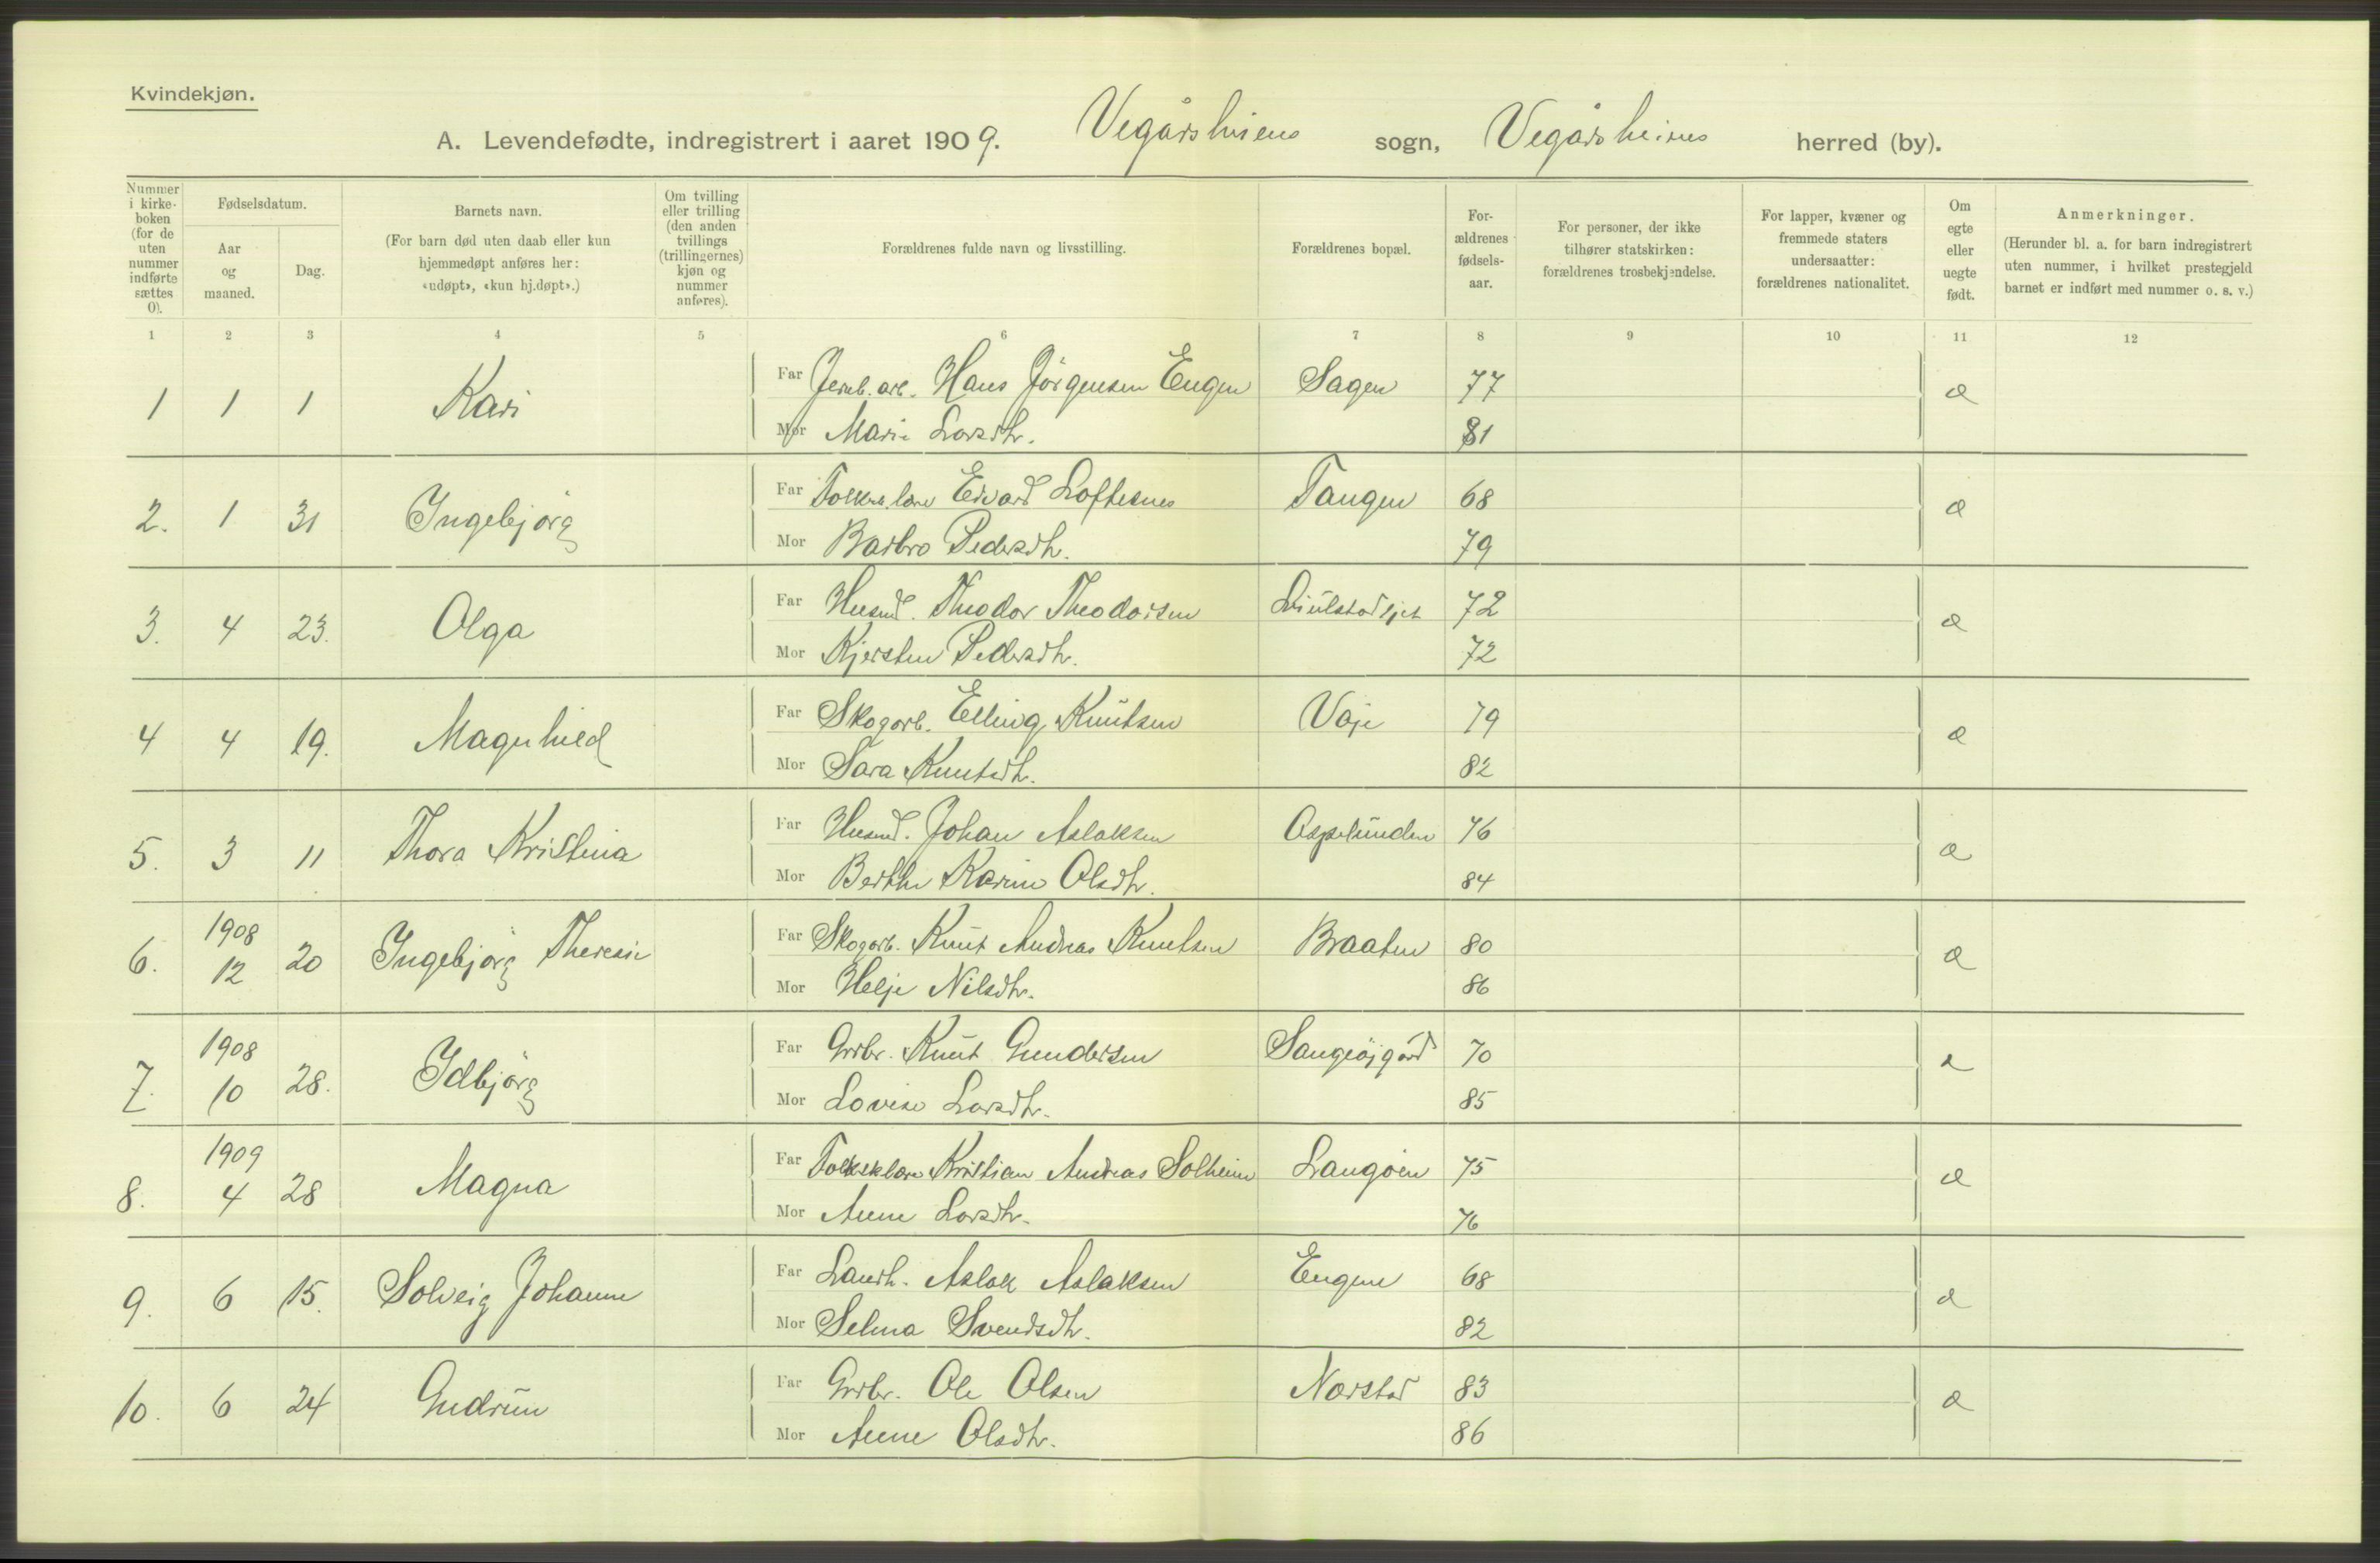 Kvindekjøn.
A. Levendefødte, indregistrert i aaret 1909. Vegårsheiens sogn, Vegårsheiens herred (by).
Nummer i kirke-boken (for de uten nummer indførte sættes 0).
Fødselsdatum.
Aar og maaned.
Dag.
Barnets navn.
(For barn død uten daab eller kun hjemmedøpt anføres her: «udøpt», «kun hj.døpt».)
Om tvilling eller trilling (den anden tvillings (trillingernes) kjøn og nummer anføres).
Forældrenes fulde navn og livsstilling.
Forældrenes bopæl.
For-ældrenes fødsels-aar.
For personer, der ikke tilhører statskirken: forældrenes trosbekjendelse.
For lapper, kvæner og fremmede staters undersaatter: forældrenes nationalitet.
Om egte eller uegte født.
Anmerkninger.
(Herunder bl. a. for barn indregistrert uten nummer, i hvilket prestegjeld barnet er indført med nummer o. s. v.)
1 2 3 4 5 6 7 8 9 10 11 12
1 1 1 Kari Far Jernb. arb. Hans Jörgensen Engen Sagen 77 æ
Mor Marie Larsdtr. 81
2. 1 31 Ingebjörg Far Folkesk.lærer Edvard Loftesnes Tangen 68 æ
Mor Barbro Pedersdtr. 79
3. 4 23. Olga Far Husmd. Theodor Theodorsen 72 æ
Mor Kjersten Pedersdtr. 72
4 4 19. Magnhild Far Skogarb. Elling Knutsen Vaje 79 æ
Mor Sara Knutsdtr. 82
5. 3 11 Thora Kristina Far Husmd. Johan Aslaksen Aspelunden 76 æ
Mor Berthe Karine Olsdtr. 84
6. 1908 12 20 Ingebjörg Theresie Far Skogarb. Knut Andreas Knutsen Braaten 80 æ
Mor Helje Nilsdtr. 86
7. 1908 10 28. Idbjörg Far Grbr. Knut Gundersen 70 æ
Mor Lovise Larsdtr. 85
8. 1909 4 28 Magna Far Folkesklærer Kristian Andreas Solheim Langöen 75 æ
Mor Anne Larsdtr. 76
9. 6 15. Solveig Johanne Far Landh. Aslak Aslaksen Engene 68 æ
Mor Selma Svendsdtr. 82
10. 6 24 Gudrun Far Grbr. Ole Olsen Nærstad 83 æ
Mor Anne Olsdtr. 86